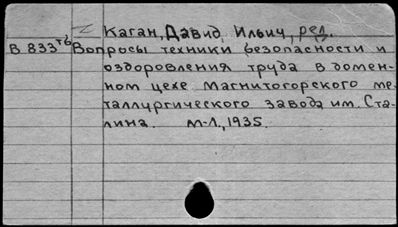 Каган, Давид Ильич, ред.
В 833 тб Вопросы техники безопасности и
оздоровления труда в домен-
ном цехе Магнитогорского ме-
таллургического завода им. Ста-
лина. М-Л., 1935.